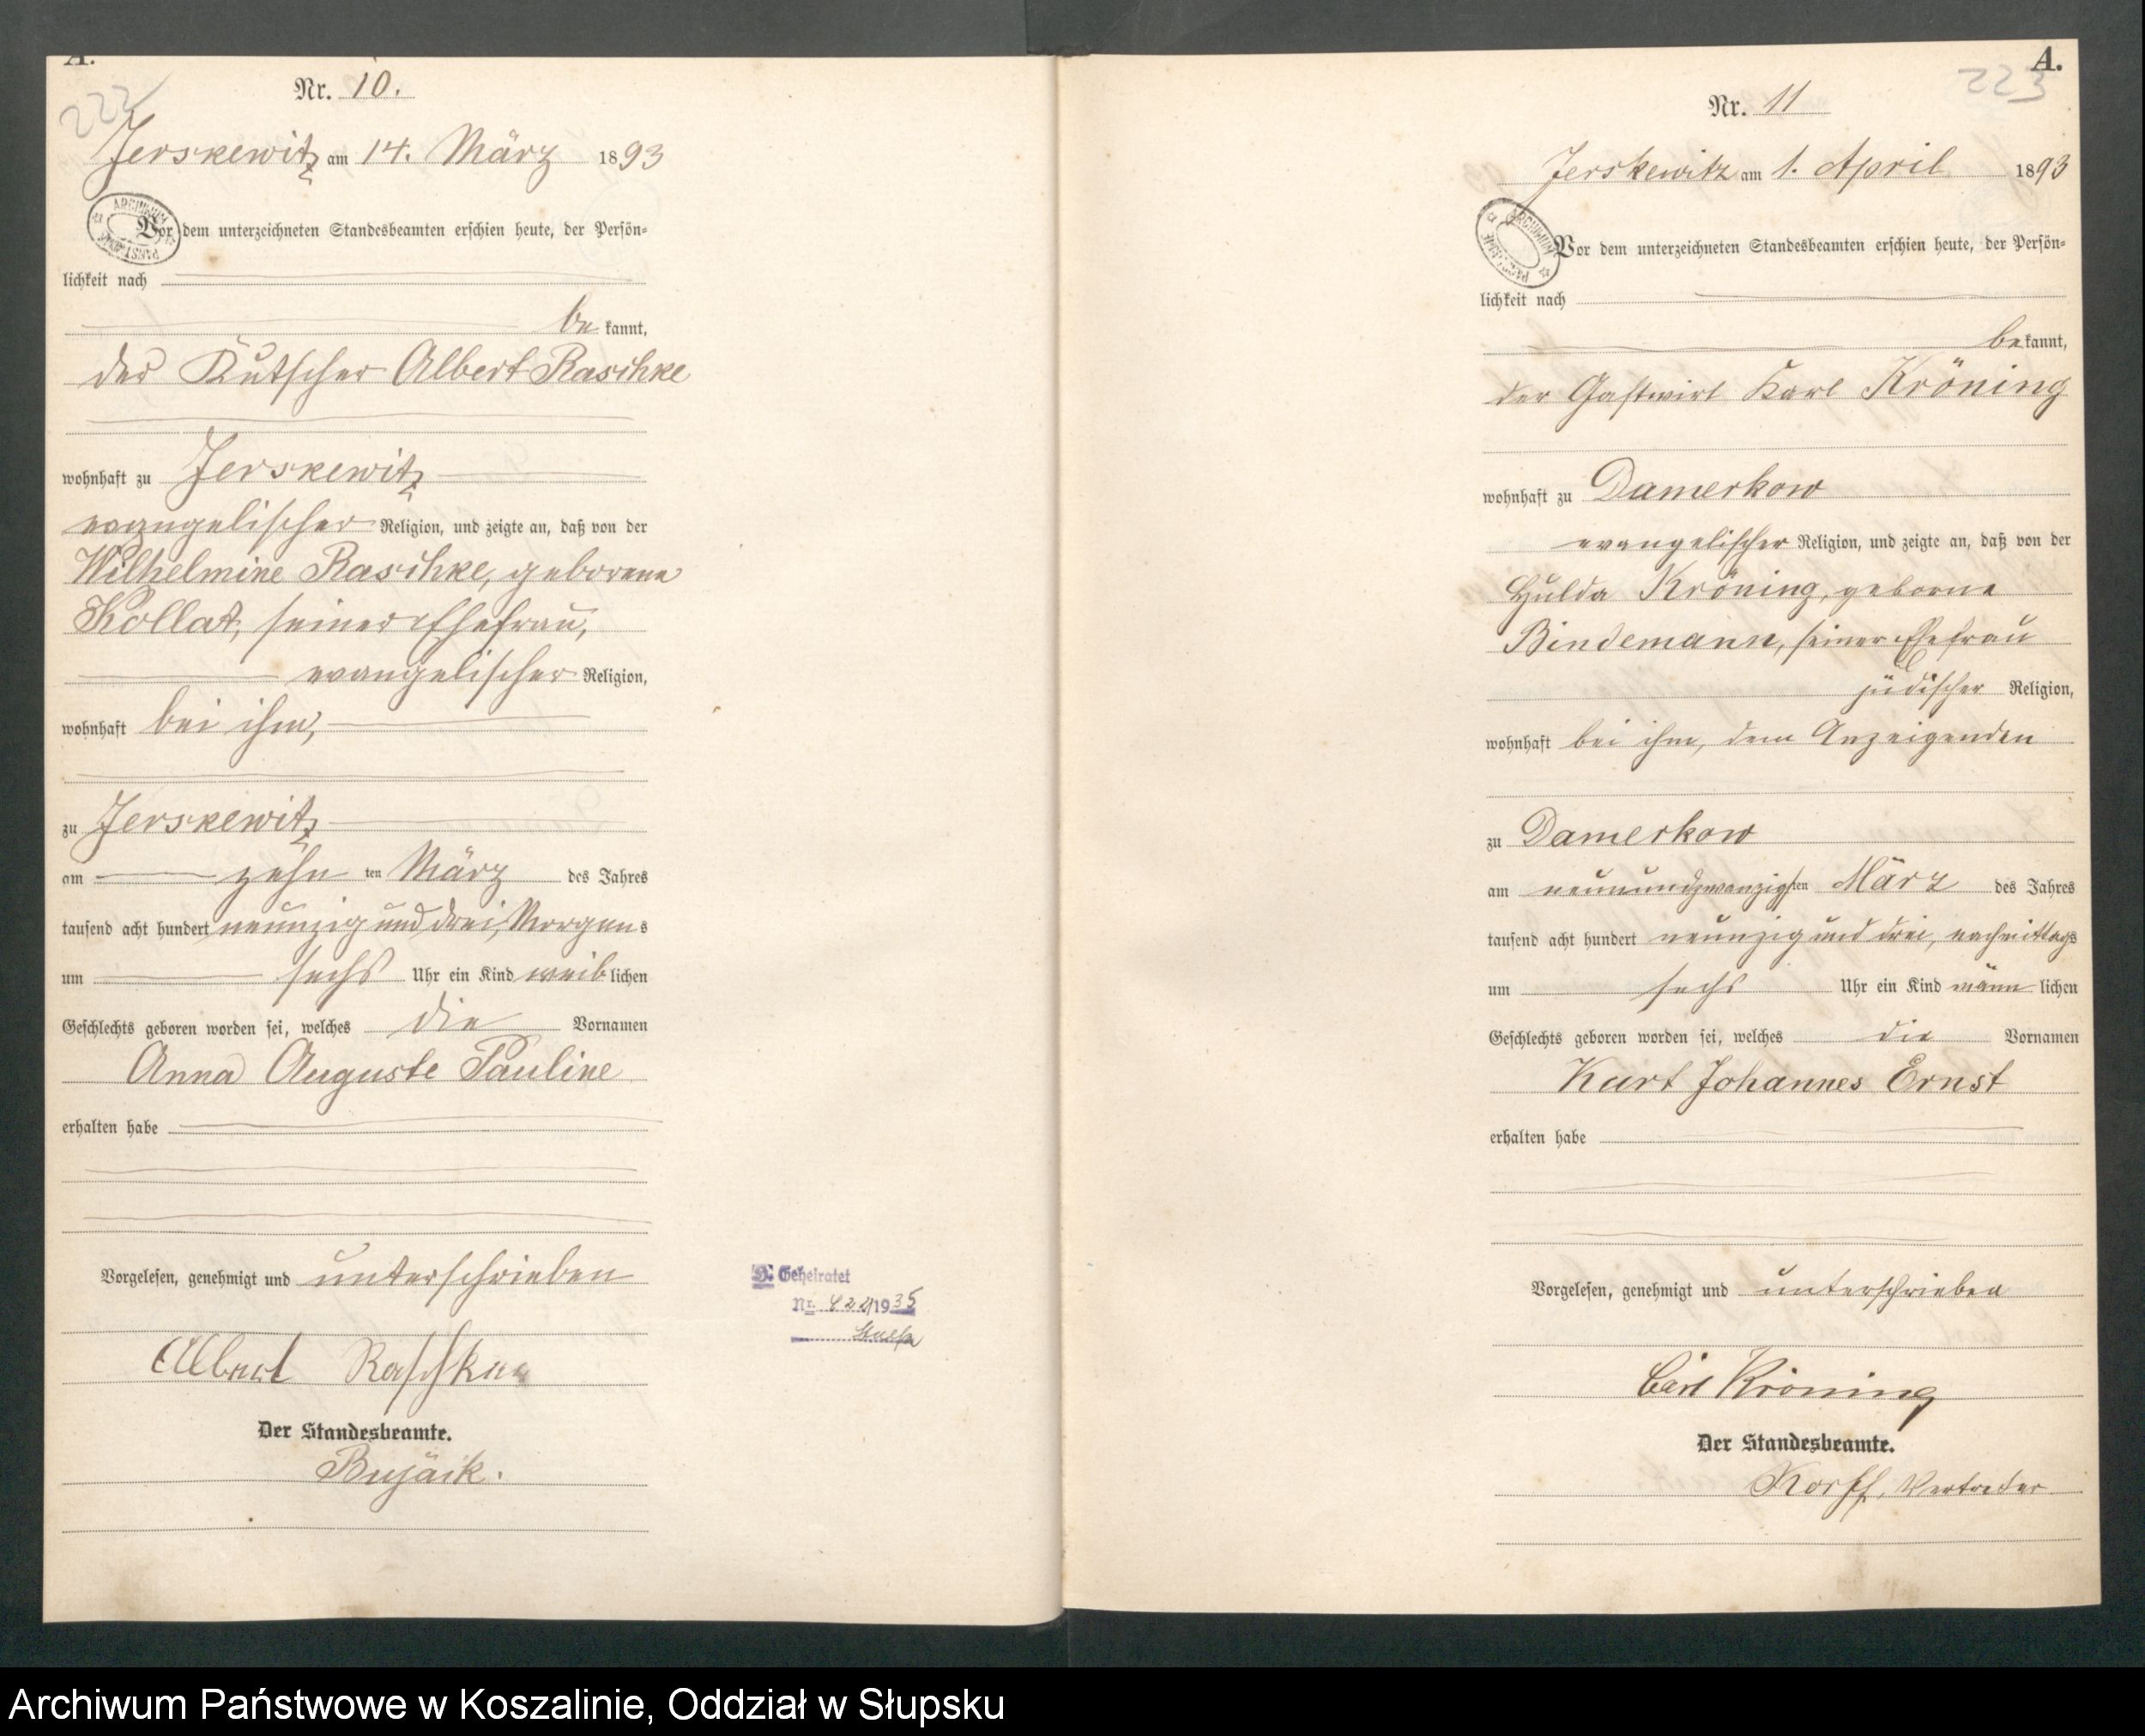 A.
222
Nr. 10.
Jerskewitz am 14. März 1893
ARCHIWUM
PAŃSTWOWE
Vor dem unterzeichneten Standesbeamten erschien heute, der Persön-
lichkeit nach
be kannt,
der Kutscher Albert Raschke
wohnhaft zu Jerskewitz
evangelischer Religion, und zeigte an, daß von der
Wilhelmine Raschke, geborene
Kollat, seiner Ehefrau,
evangelischer Religion,
wohnhaft bei ihm,
zu Jerskewitz
am zehn ten März des Jahres
tausend acht hundert neunzig und drei, Morgens
um sechs Uhr ein Kind weiblichen
Geschlechts geboren worden sei, welches die Vornamen
Anna Auguste Pauline
erhalten habe
Vorgelesen, genehmigt und unterschrieben
Albert Raschke
Der Standesbeamte.
Geheiratet
Nr. 422/1935
A.
223
Nr. 11
Jerskewitz am 1. April 1893
ARCHIWUM
PAŃSTWOWE
Vor dem unterzeichneten Standesbeamten erschien heute, der Persön-
lichkeit nach
bekannt,
der Gastwirt Karl Kröning
wohnhaft zu Damerkow
evangelischer Religion, und zeigte an, daß von der
Hulda Kröning, geborne
Bindemann, seiner Ehefrau
jüdischer Religion,
wohnhaft bei ihm, dem Anzeigenden
zu Damerkow
am neunundzwanzigsten März des Jahres
tausend acht hundert neunzig und drei, nachmittags
um sechs Uhr ein Kind männ lichen
Geschlechts geboren worden sei, welches die Vornamen
Kurt Johannes Ernst
erhalten habe
Vorgelesen, genehmigt und unterschrieben
Carl Kröning
Der Standesbeamte.
Korff, Vertreter
Archiwum Państwowe w Koszalinie, Oddział w Słupsku